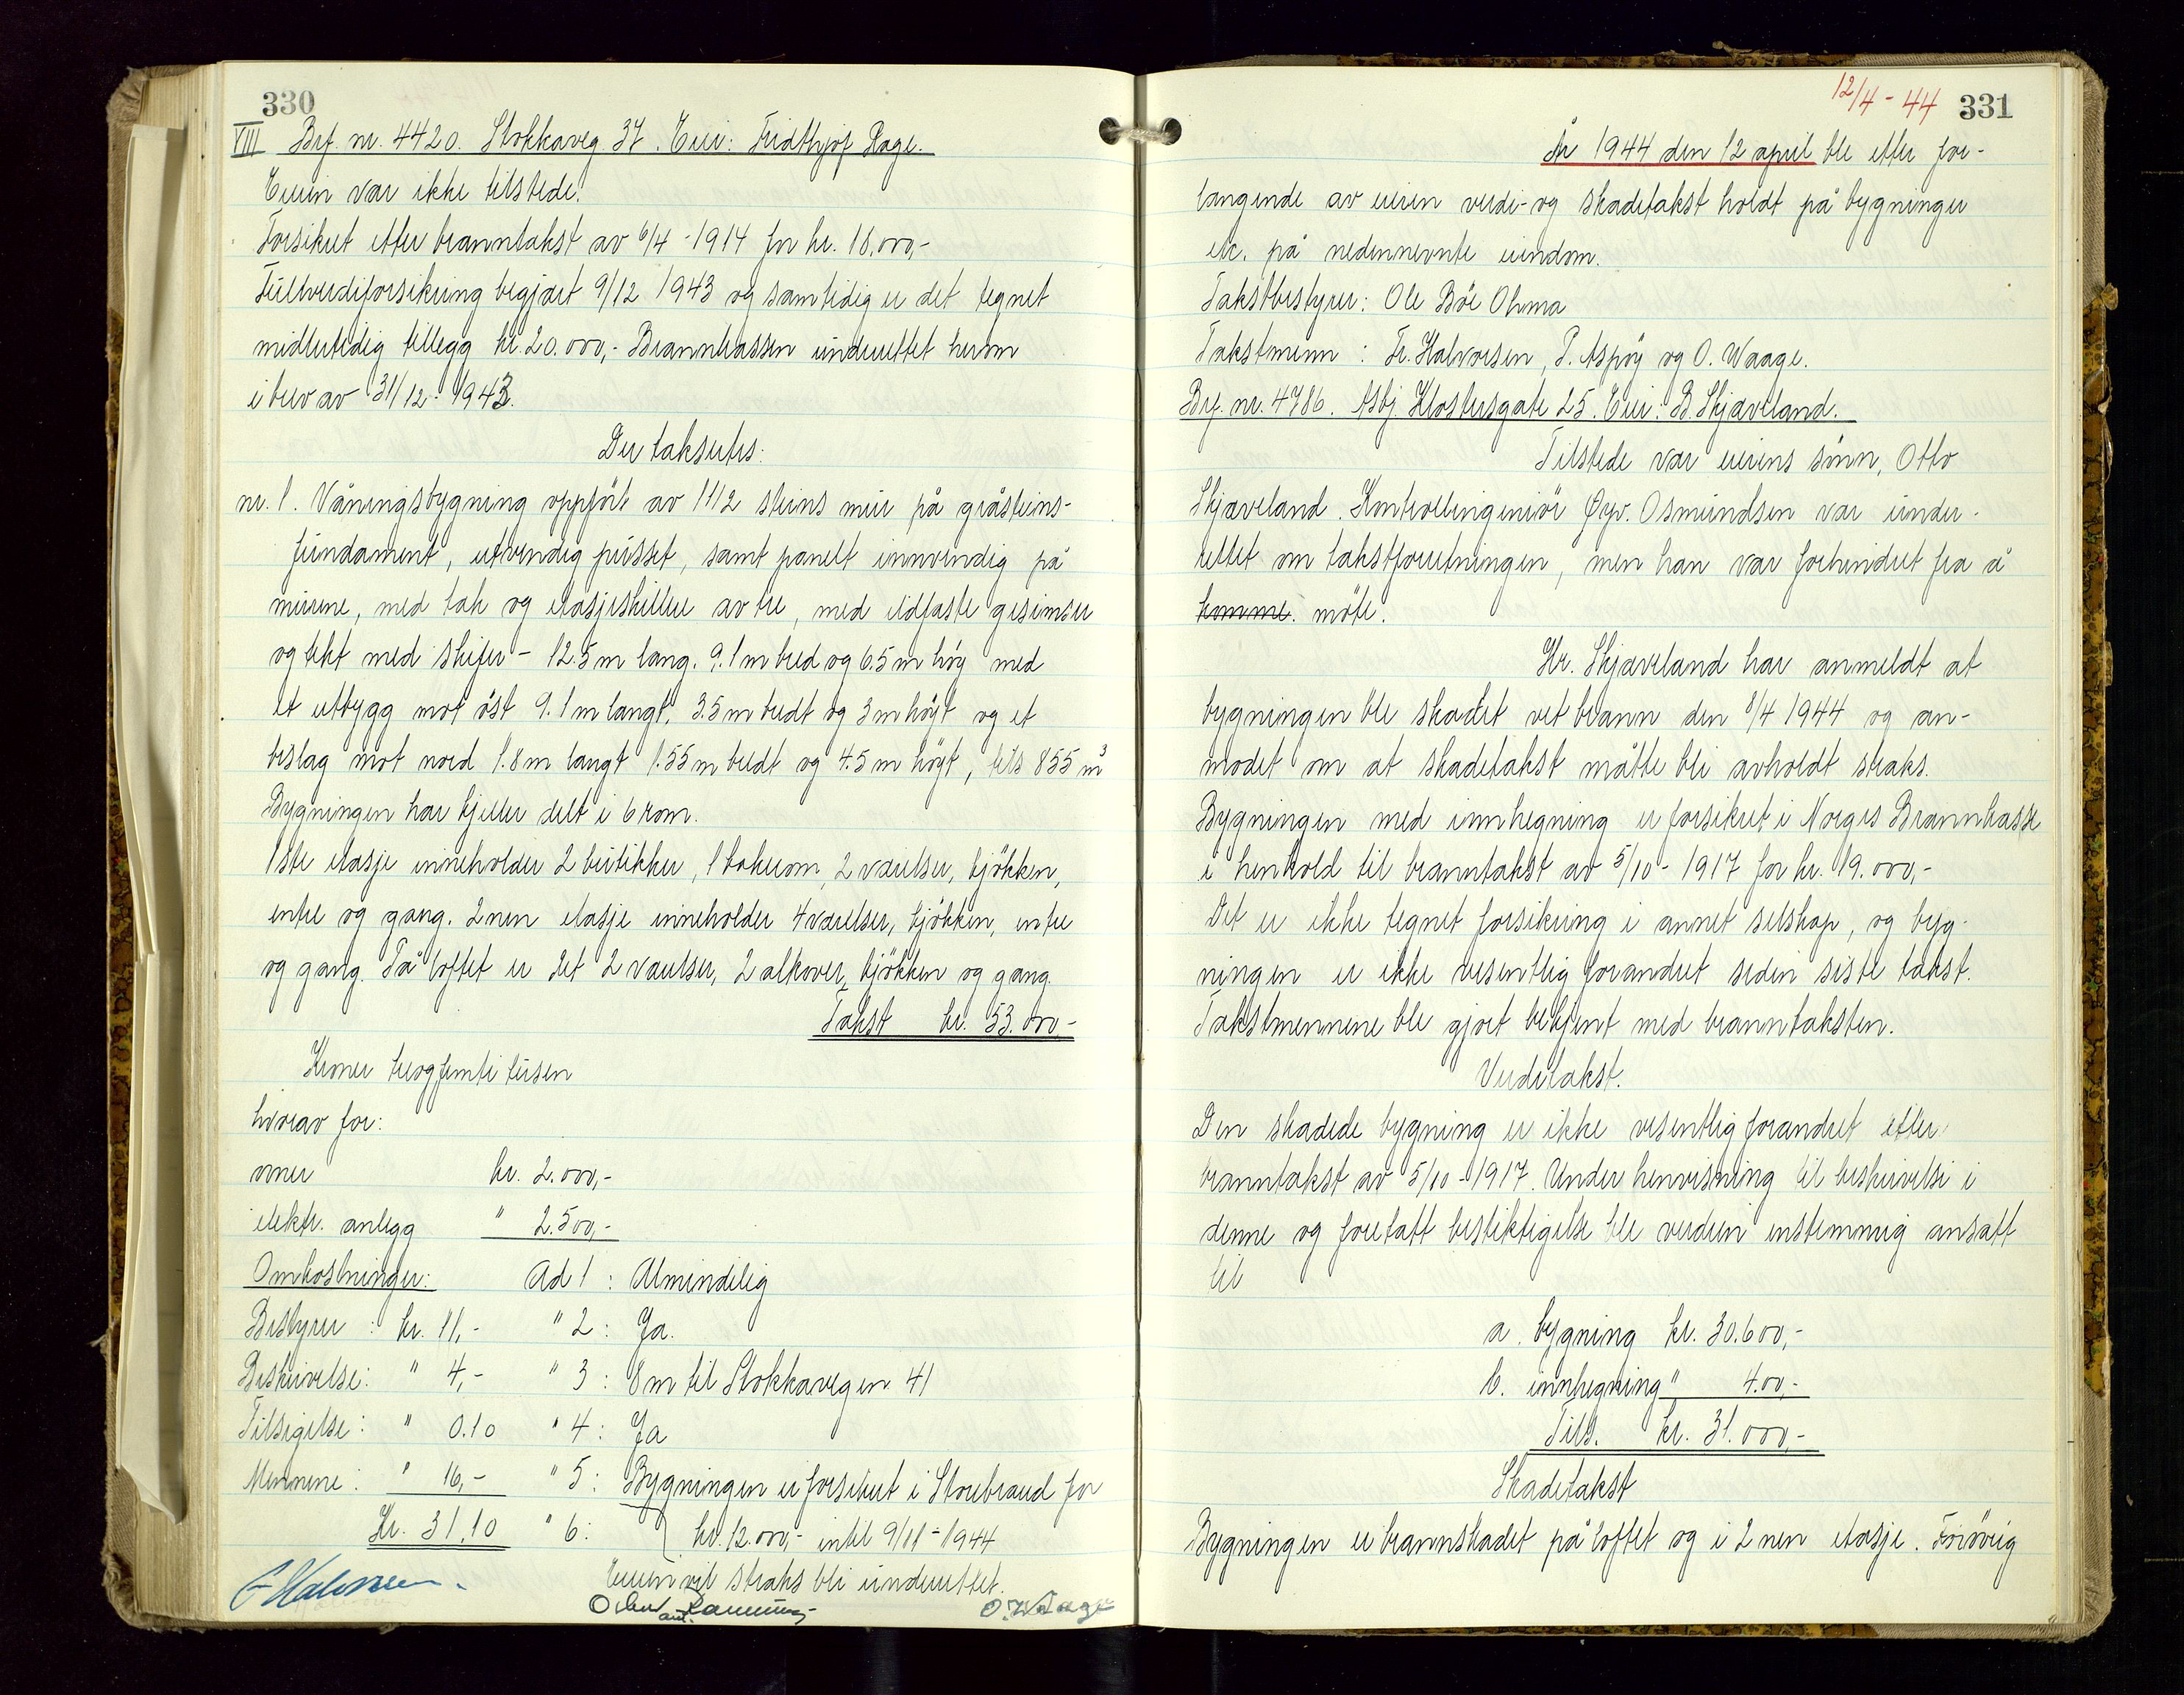 330
VIII Brf. nr. 4420. Stokkaveg 37. Eier: Fridthjof Hage.
Eieren var ikke tilstede.
Forsikret etter branntakst av 6/4 - 1914 for kr. 18.000,-
Fullverdiforsikring begjært 9/12 1943 og samtidig er det tegnet
midlertidig tillegg kr. 20.000,- Brannkassen underrettet herom
i brev av 31/12 - 1943.
Der takseres:
nr. 1. Våningsbygning oppført av 1 1/2 steins mur på gråsteins-
fundament, utvendig pusset, samt panelt innvendig på
murene, med tak og etasjeskiller av tre, med ildfaste gesimser
og tekt med skifer - 12.5 m lang. 9.1 m bred og 6.5 m høy med
et utbygg mot øst 9.1 m langt, 3.5 m bredt og 3 m høyt og et
beslag mot nord 1.8 m langt 1.55 m bredt og 4.5 m høyt, tils 855 m³
Bygningen har kjeller delt i 6 rom.
1ste etasje inneholder 2 butikker, 1 bakerom, 2 værelser, kjøkken,
entre og gang. 2nen etasje inneholder 4 værelser, kjøkken, entre
og gang. På loftet er det 2 værelser, 2 alkover, kjøkken og gang.
Takst kr. 53.000,-
Kroner treogfemti tusen
hvorav for:
ovner kr. 2.000,-
elektr. anlegg " 2.500,-
Omkostninger: Ad 1 : Almindelig
Bestyrer : kr. 11,- " 2 : Ja.
Beskrivelse: " 4,- " 3 : 8 m til Stokkavegen 41
Tilsigelse: " 0.10 " 4 : Ja
Mennene : " 16,- " 5 : Bygningen er forsikret i Storebrand for
Kr. 31.10 " 6 : kr. 12.000,- intil 9/11 - 1944
Eieren vil straks bli underrettet.
O. Waage
12/4 - 44 331
År 1944 den 12 april ble etter for-
langende av eieren verdi- og skadetakst holdt på bygninger
etc. på nedennevnte eiendom.
Takstbestyrer: Ole Bøe Ohma
Takstmenn : Fr. Halvorsen, P. Aspøy og O. Waage.
Brf. nr. 4786. Asbj. Klostersgate 25. Eier: B. Skjæveland.
Tilstede var eierens sønn, Otto
Skjæveland. Kontrollingeniør Øyv. Osmundsen var under-
rettet om takstforretningen, men han var forhindret fra å
komme. møte.
Hr. Skjæveland har anmeldt at
bygningen ble skadet vet brann den 8/4 1944 og an-
modet om at skadetakst måtte bli avholdt straks.
Bygningen med innhegning er forsikret i Norges Brannkasse
i henhold til branntakst av 5/10 - 1917 for kr. 19.000,-
Det er ikke tegnet forsikring i annet selskap, og byg-
ningen er ikke vesentlig forandret siden siste takst.
Takstmennene ble gjort bekjent med branntaksten.
Verditakst.
Den skadede bygning er ikke vesentlig forandret etter
branntakst av 5/10 - 1917. Under henvisning til beskrivelse i
denne og foretatt besiktigelse ble verdien enstemmig ansatt
til
a. bygning kr. 30.600,-
b. innhegning " 4.00,-
Tils. kr. 31.000,-
Skadetakst
Bygningen er brannskadet på loftet og i 2nen etasje. Forøvrig